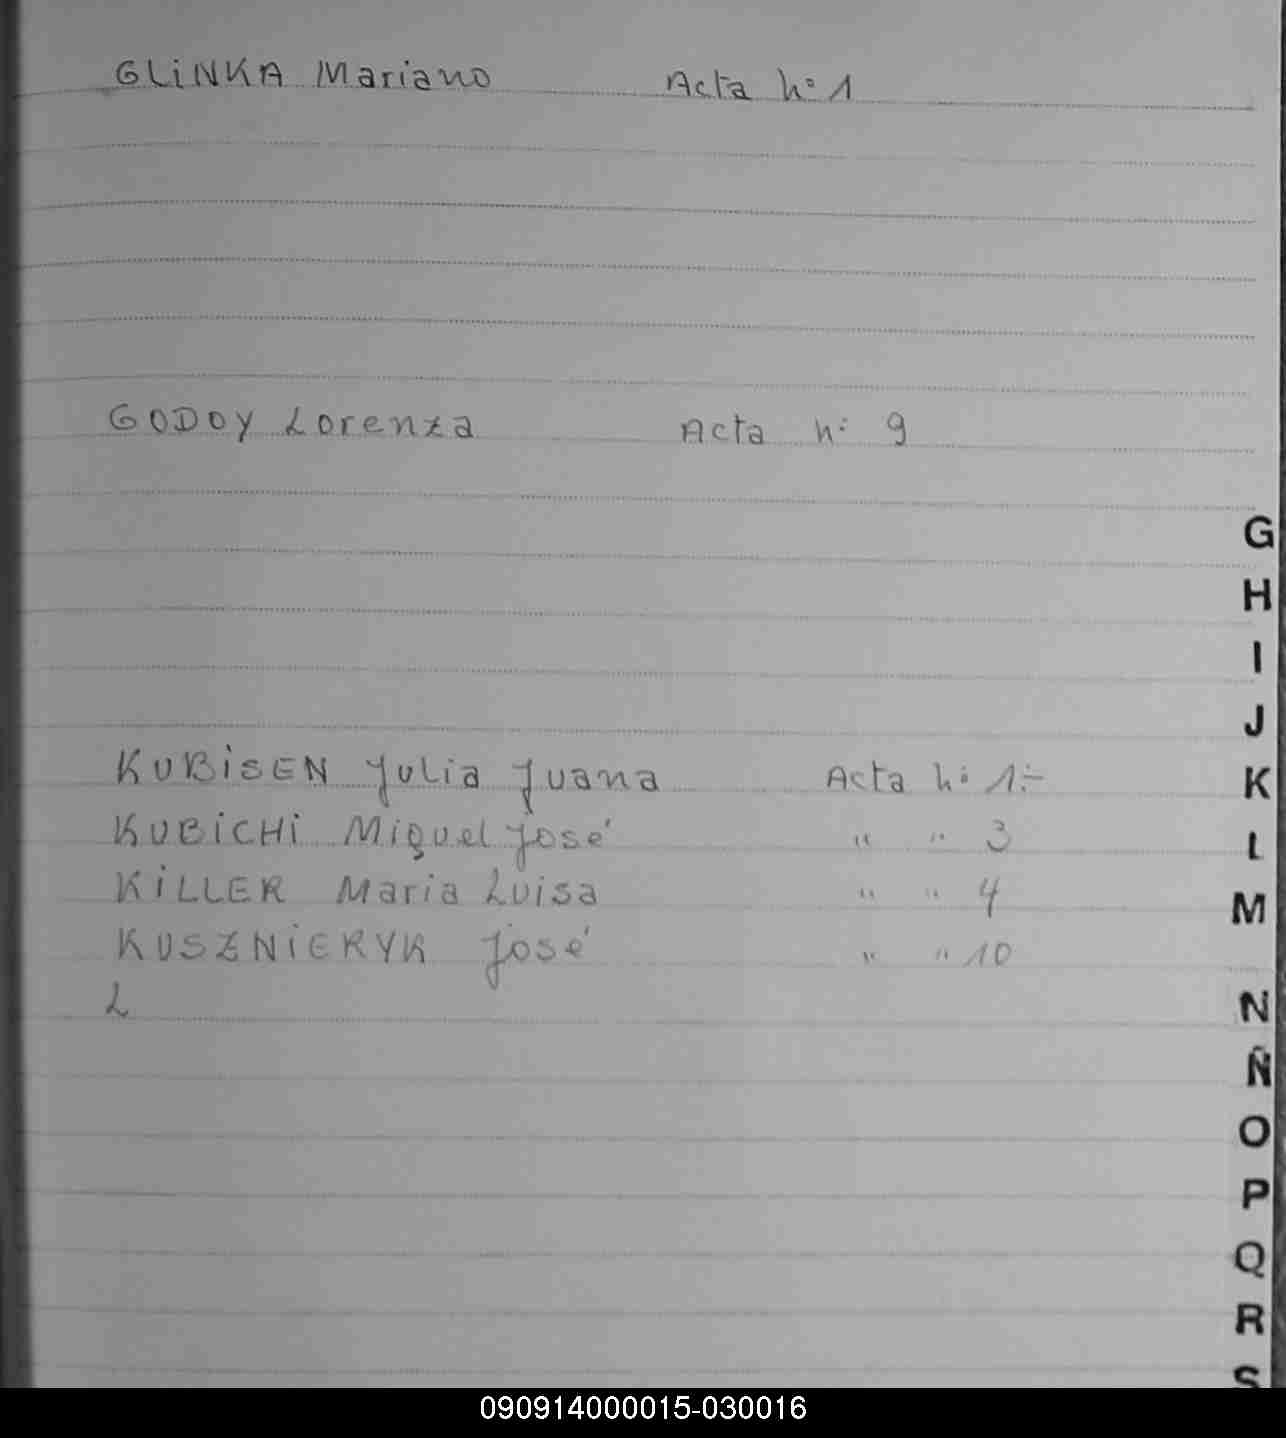 GLiNKA Mariano Acta nº 1
GODOY Lorenza Acta nº 9
KUBiSEN Julia Juana Acta nº 1.-
KUBiCHi Miguel José " " 3
KiLLER Maria Luisa " " 4
KUSZNiERYK José " " 10
L
G
H
I
J
K
L
M
N
Ñ
O
P
Q
R
S
090914000015-030016